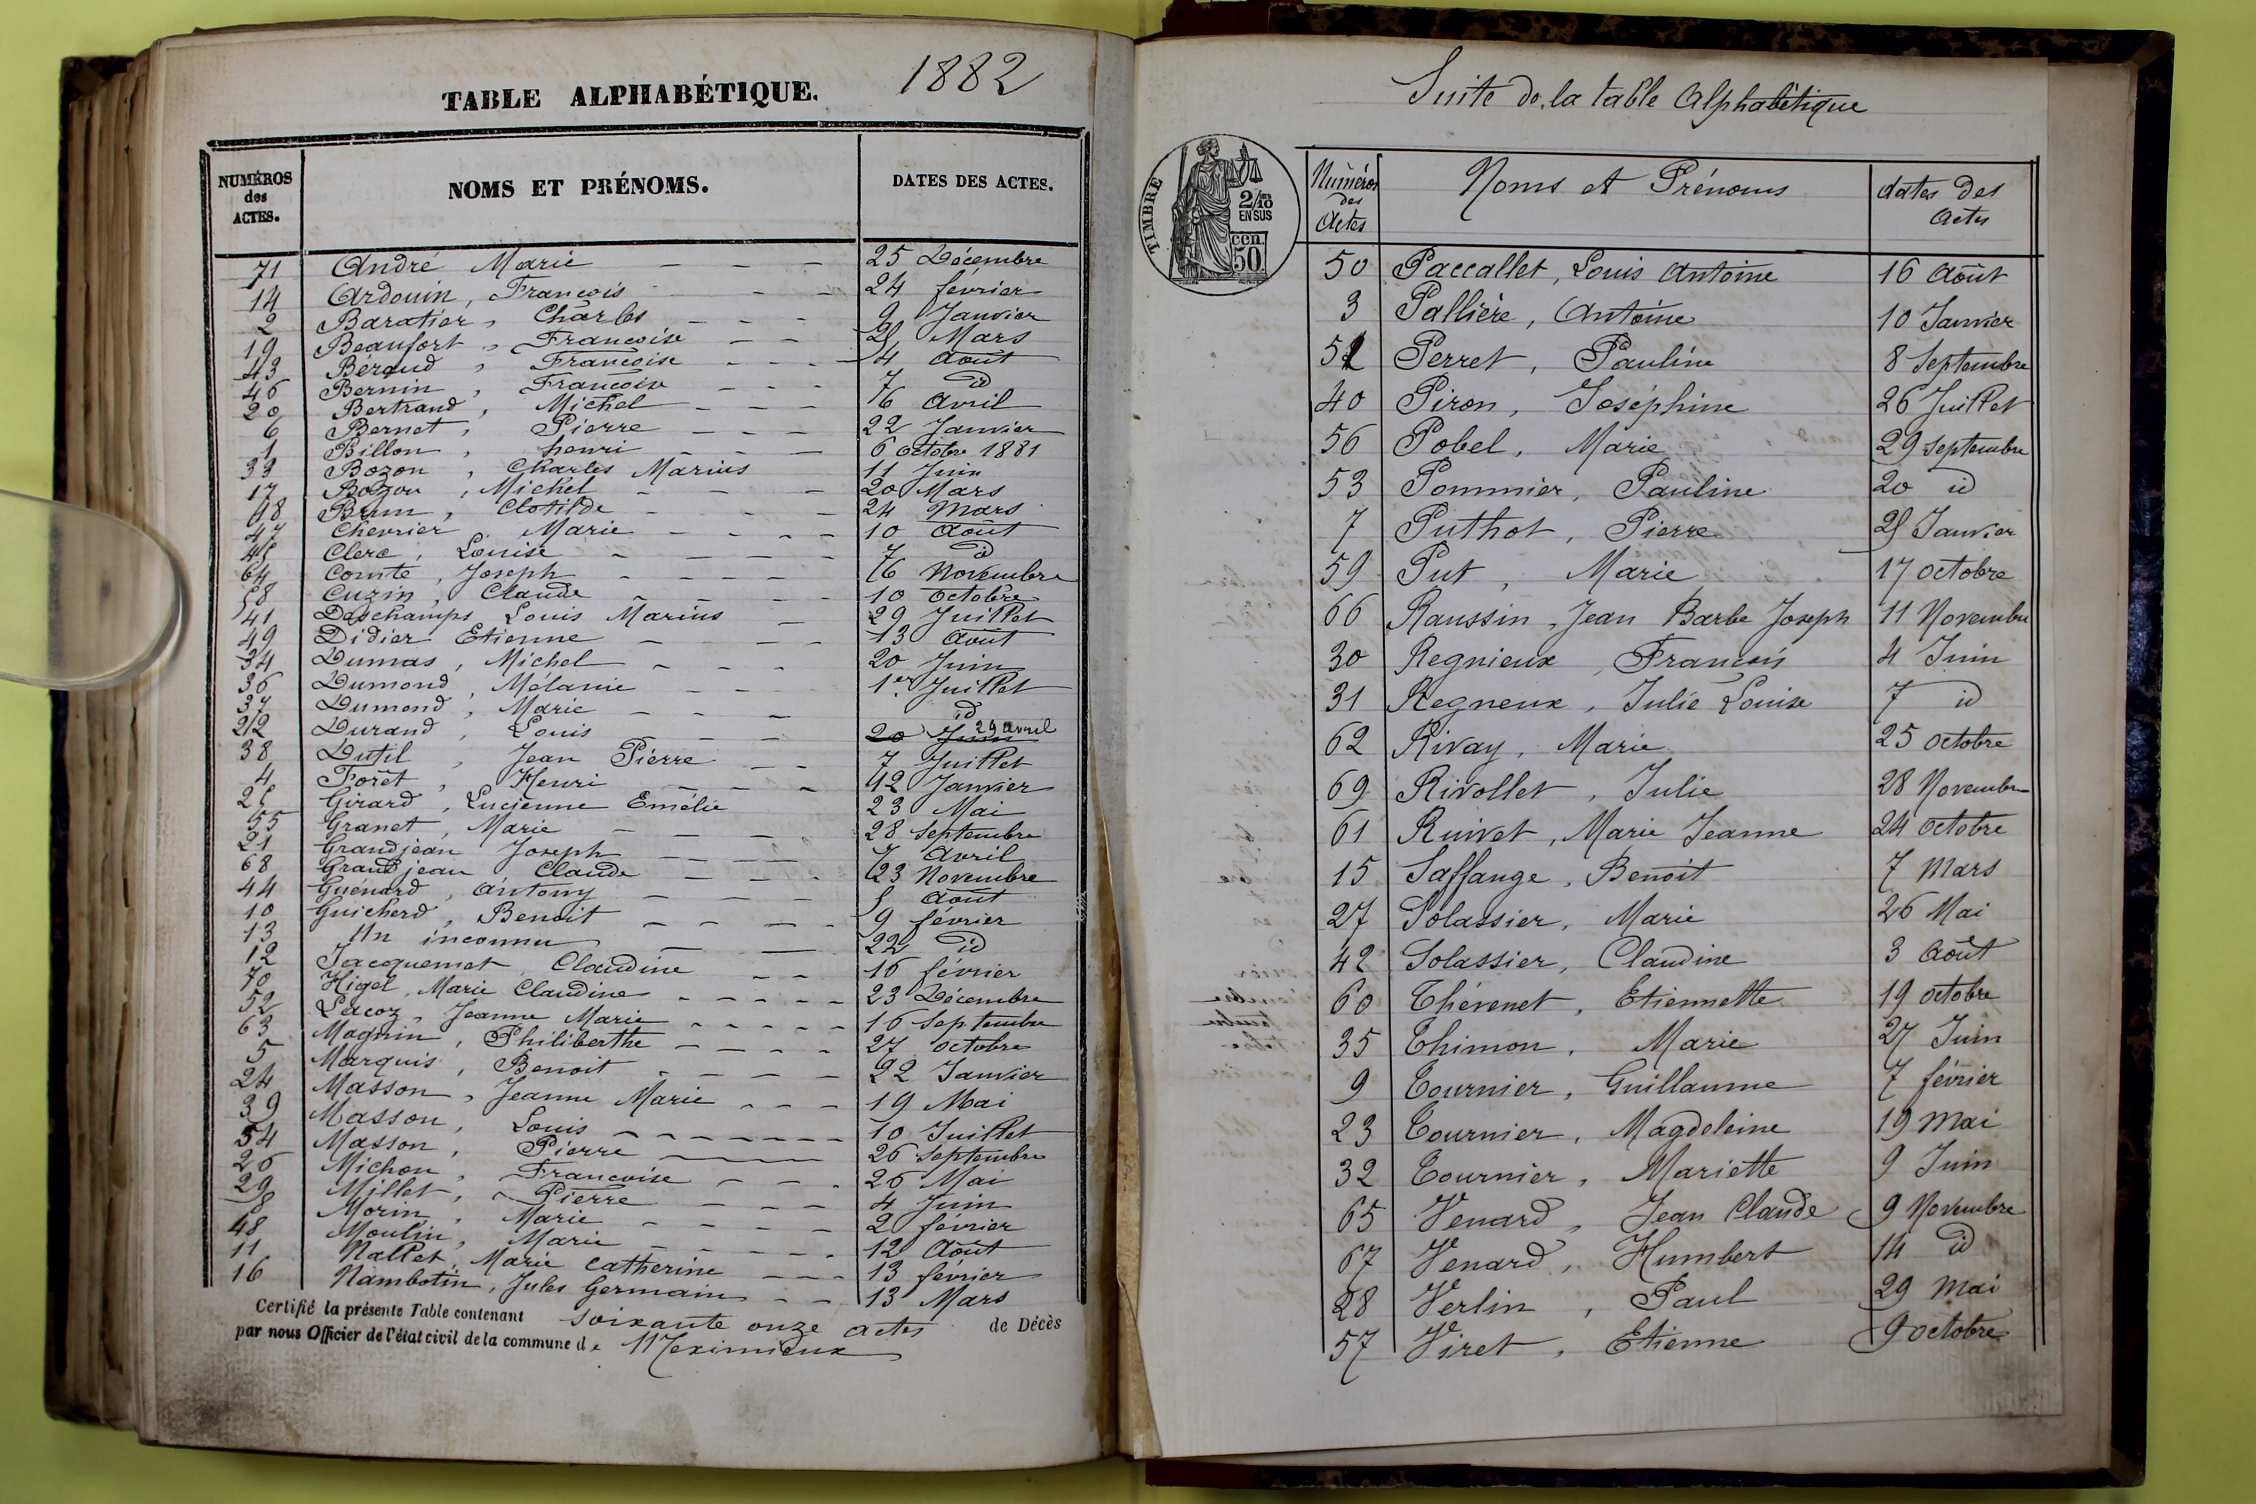 1882
TABLE ALPHABÉTIQUE.
NUMÉROS des ACTES. NOMS ET PRÉNOMS. DATES DES ACTES.
71 André Marie 25 Décembre
14 Ardouin, François 24 février
2 Baratier, Charles 9 Janvier
19 Beaufort, Francoise 25 Mars
43 Béraud, Francoise 4 Août
46 Bernin, Francoise 7 id
20 Bertrand, Michel 6 Avril
6 Bernet, Pierre 22 Janvier
1 Billon, henri 6 octobre 1881
33 Bozon, Charles Marius 11 Juin
17 Bozon, Michel 20 Mars
18 Brun, Clotilde 24 Mars
47 Chevrier Marie 10 Août
45 Clerc, Louise 7 id
64 Comte, Joseph 6 Novembre
58 Cuzin, Claude 10 Octobre
41 Deschamps Louis Marius 29 Juillet
49 Didier Etienne 13 Août
34 Dumas, Michel 20 Juin
36 Dumond, Mélanie 1er Juillet
37 Dumond, Marie id
22 Durand, Louis 20 Juin 29 avril
38 Dutil, Jean Pierre 7 Juillet
4 Forêt, Henri 12 Janvier
25 Girard, Lucienne Emélie 23 Mai
55 Granet, Marie 28 Septembre
21 Grandjean Joseph 7 Avril
68 Grandjean Claude 23 Novembre
44 Guénard, Antony 5 Août
10 Guicherd, Benoit 9 février
13 Un inconnu 22 id
12 Jacquemet, Claudine 16 février
70 Higel, Marie Claudine 23 Décembre
52 Lacoz, Jeanne Marie 16 Septembre
63 Magnin, Philiberthe 27 octobre
5 Marquis, Benoit 22 Janvier
24 Masson, Jeanne Marie 19 Mai
39 Masson, Louis 10 Juillet
54 Masson, Pierre 26 Septembre
26 Michon, Francoise 26 Mai
29 Millet, Pierre 4 Juin
8 Morin, Marie 2 février
48 Moulin, Marie 12 Août
11 Nallet, Marie Catherine 13 février
16 Nambotin, Jules Germain 13 Mars
Certifié la présente Table contenant soixante onze actes de Décès
par nous Officier de l'état civil de la commune de Meximieux
Suite de la table Alphabétique
TIMBRE
2/10 EN SUS
cen. 50
Numéros des Actes Noms et Prénoms dates des Actes
50 Paccallet, Louis Antoine 16 Août
3 Pallière, Antoine 10 Janvier
51 Perret, Pauline 8 Septembre
40 Piron, Joséphine 26 Juillet
56 Pobel, Marie 29 Septembre
53 Pommier, Pauline 20 id
7 Puthot, Pierre 25 Janvier
59 Put, Marie 17 octobre
66 Raussin, Jean Barbe Joseph 11 Novembre
30 Regnieux, François 4 Juin
31 Regneux, Julie Louise 7 id
62 Rivay, Marie 25 octobre
69 Rivollet, Julie 28 Novembre
61 Ruivet, Marie Jeanne 24 octobre
15 Saffange, Benoit 7 Mars
27 Solassier, Marie 26 Mai
42 Solassier, Claudine 3 Août
60 Thévenet, Etiennette 19 octobre
35 Thimon, Marie 27 Juin
9 Tournier, Guillaume 7 février
23 Tournier, Magdeleine 19 Mai
32 Tournier, Mariette 9 Juin
65 Venard, Jean Claude 9 Novembre
67 Venard, Humbert 14 id
28 Verlin, Paul 29 Mai
57 Viret, Etienne 9 octobre